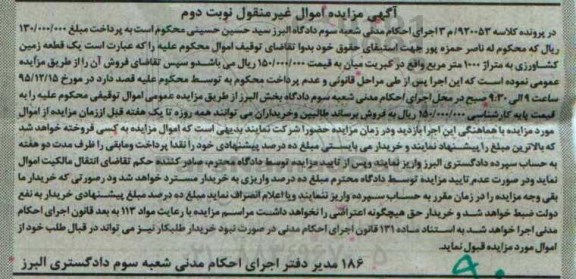 آگهی مزایده اموال غیرمنقول نوبت دوم
در پرونده کلاسه ۹۲۰۰۵۳/م ۳ اجرای احکام مدنی شعبه سوم دادگاه البرز سید حسین حسینی محکوم است به پرداخت مبلغ ۱۳۰/۰۰۰/۰۰۰
ریال که محکوم له ناصر حمزه پور جهت استیفای حقوق خود بدوا تقاضای توقیف اموال محکوم علیه را که عبارت است یک قطعه زمین
کشاورزی به متراژ ۱۰۰۰ متر مربع واقع در کبریت میان به قیمت ۱۵۰/۰۰۰/۰۰۰ ریال می باشدو سپس تقاضای فروش آن را از طریق مزایده
عمومی نموده است که این اجرا پس از طی مراحل قانونی و عدم پرداخت محکوم به توسط محکوم علیه قصد دارد در مورخ ۹۵/۱۲/۱۵
ساعت ۹ الی ۹:۳۰ صبح در محل اجرای احکام مدنی شعبه سوم دادگاه بخش البرز از طریق مزایده عمومی اموال توقیفی محکوم علیه را به
قیمت پایه کارشناسی ۱۵۰/۰۰۰/۰۰۰ ریال به فروش برساند طالبین وخریداران می توانند همه روزه تا یک هفته قبل اززمان مزایده از اموال
مورد مزایده با هماهنگی این اجرا بازدید ودر زمان مزایده حضورا شرکت نمایند بدیهی است که اموال مزایده به کسی فروخته خواهد شد
که بالاترین مبلغ را پیشنهاد نمایند و خریدار می بایستی مبلغ ده درصد پیشنهادی خود را نقدا پرداخت ومابقی را ظرف مدت دو هفته
به حساب سپرده دادگستری البرز واریز نمایند وپس از تایید مزایده توسط دادگاه محترم، صادر کننده حکم تقاضای انتقال مالکیت اموال
نماید ودر صورت عدم تایید مزایده توسط دادگاه محترم مبلغ ده درصد واریزی به خریدار مسترد خواهد شد ودر صورتی که خریدار ما
بقی وجه مزایده را در زمان مقرر به حساب سپرده واریز ننمایند ویا اعلام انصراف نماید مبلغ ده درصد مبلغ پیشنهادی خریدار به نفع
دولت ضبط خواهد شد و خریدار حق هیچگونه اعتراضی را نخواهد داشت مراسم مزایده با رعایت مواد ۱۱۳ به بعد قانون اجرای احکام
مدنی اجرا خواهد شد به استناد ماده ۱۳۱ قانون اجرای احکام مدنی در صورت نبود خریدار طلبکار نیز می تواند در قبال طلب خود از
اموال مورد مزایده قبول نماید.
۱۸۶ مدیر دفتر اجرای احکام مدنی شعبه سوم دادگستری البرز